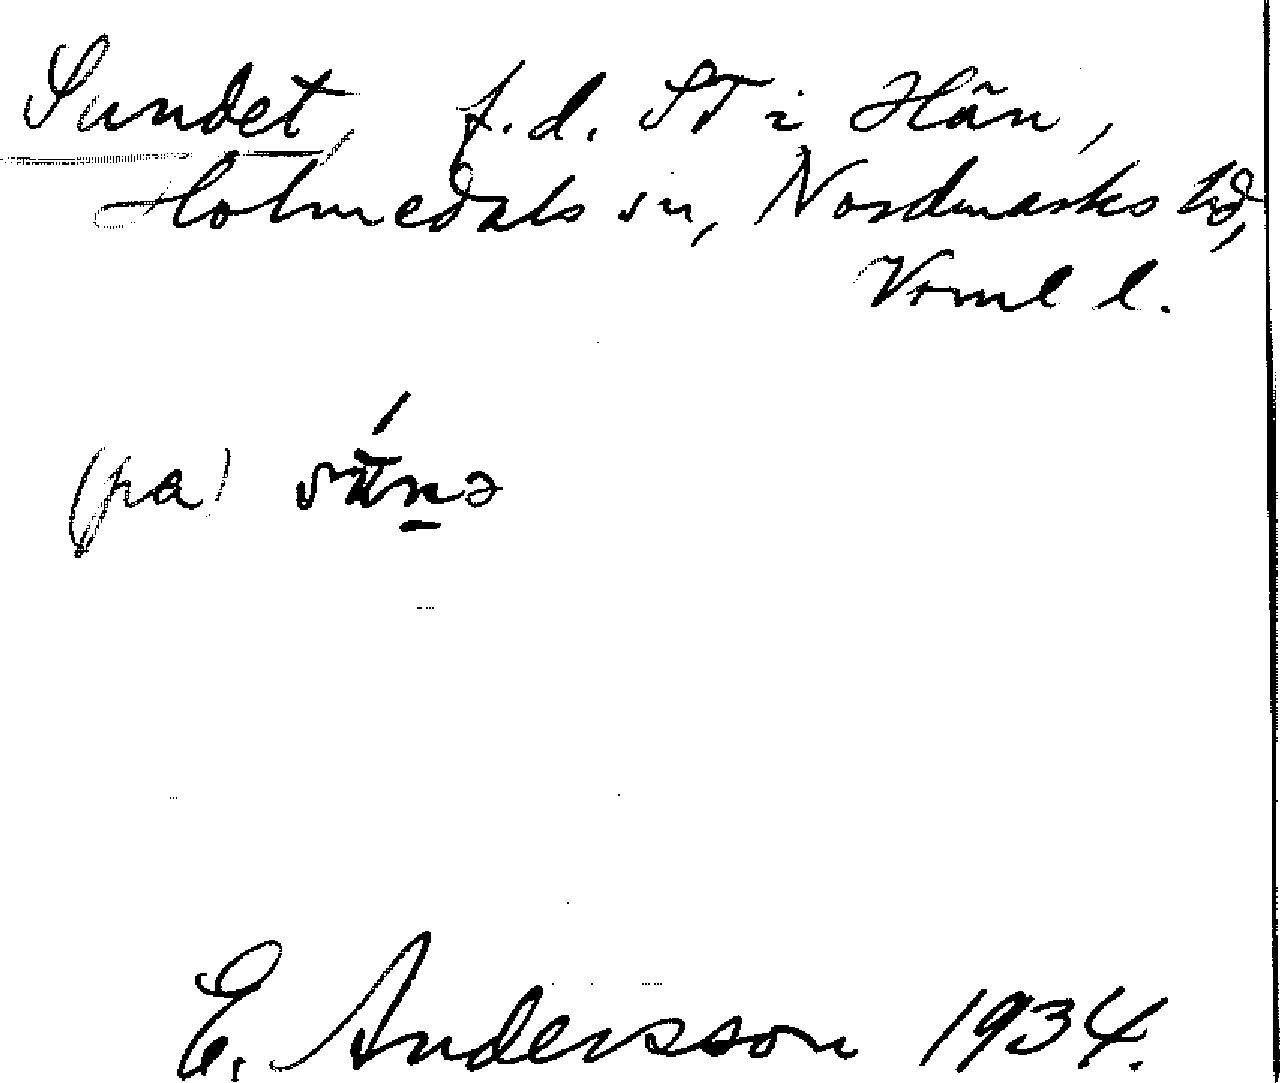 Sundet, f.d. ST i Hån,
Holmedals sn, Nordmarks hd,
Värml l.
(pa)
E. Andersson 1934.